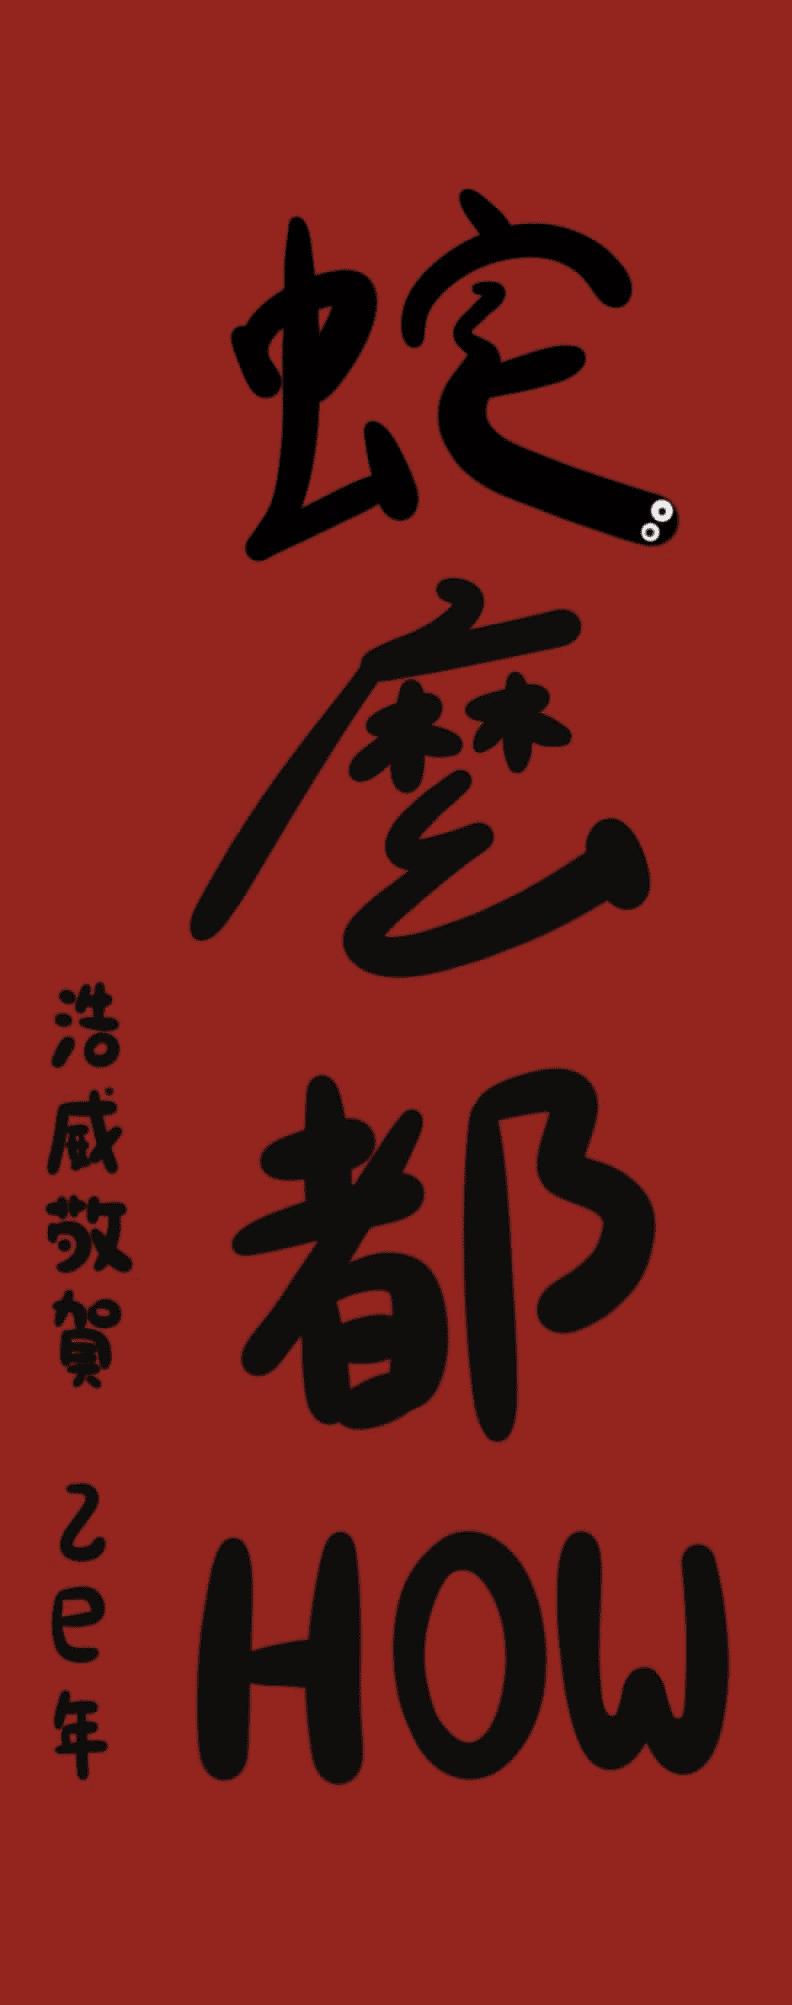 蛇麼都HOW
浩威敬賀 乙巳年